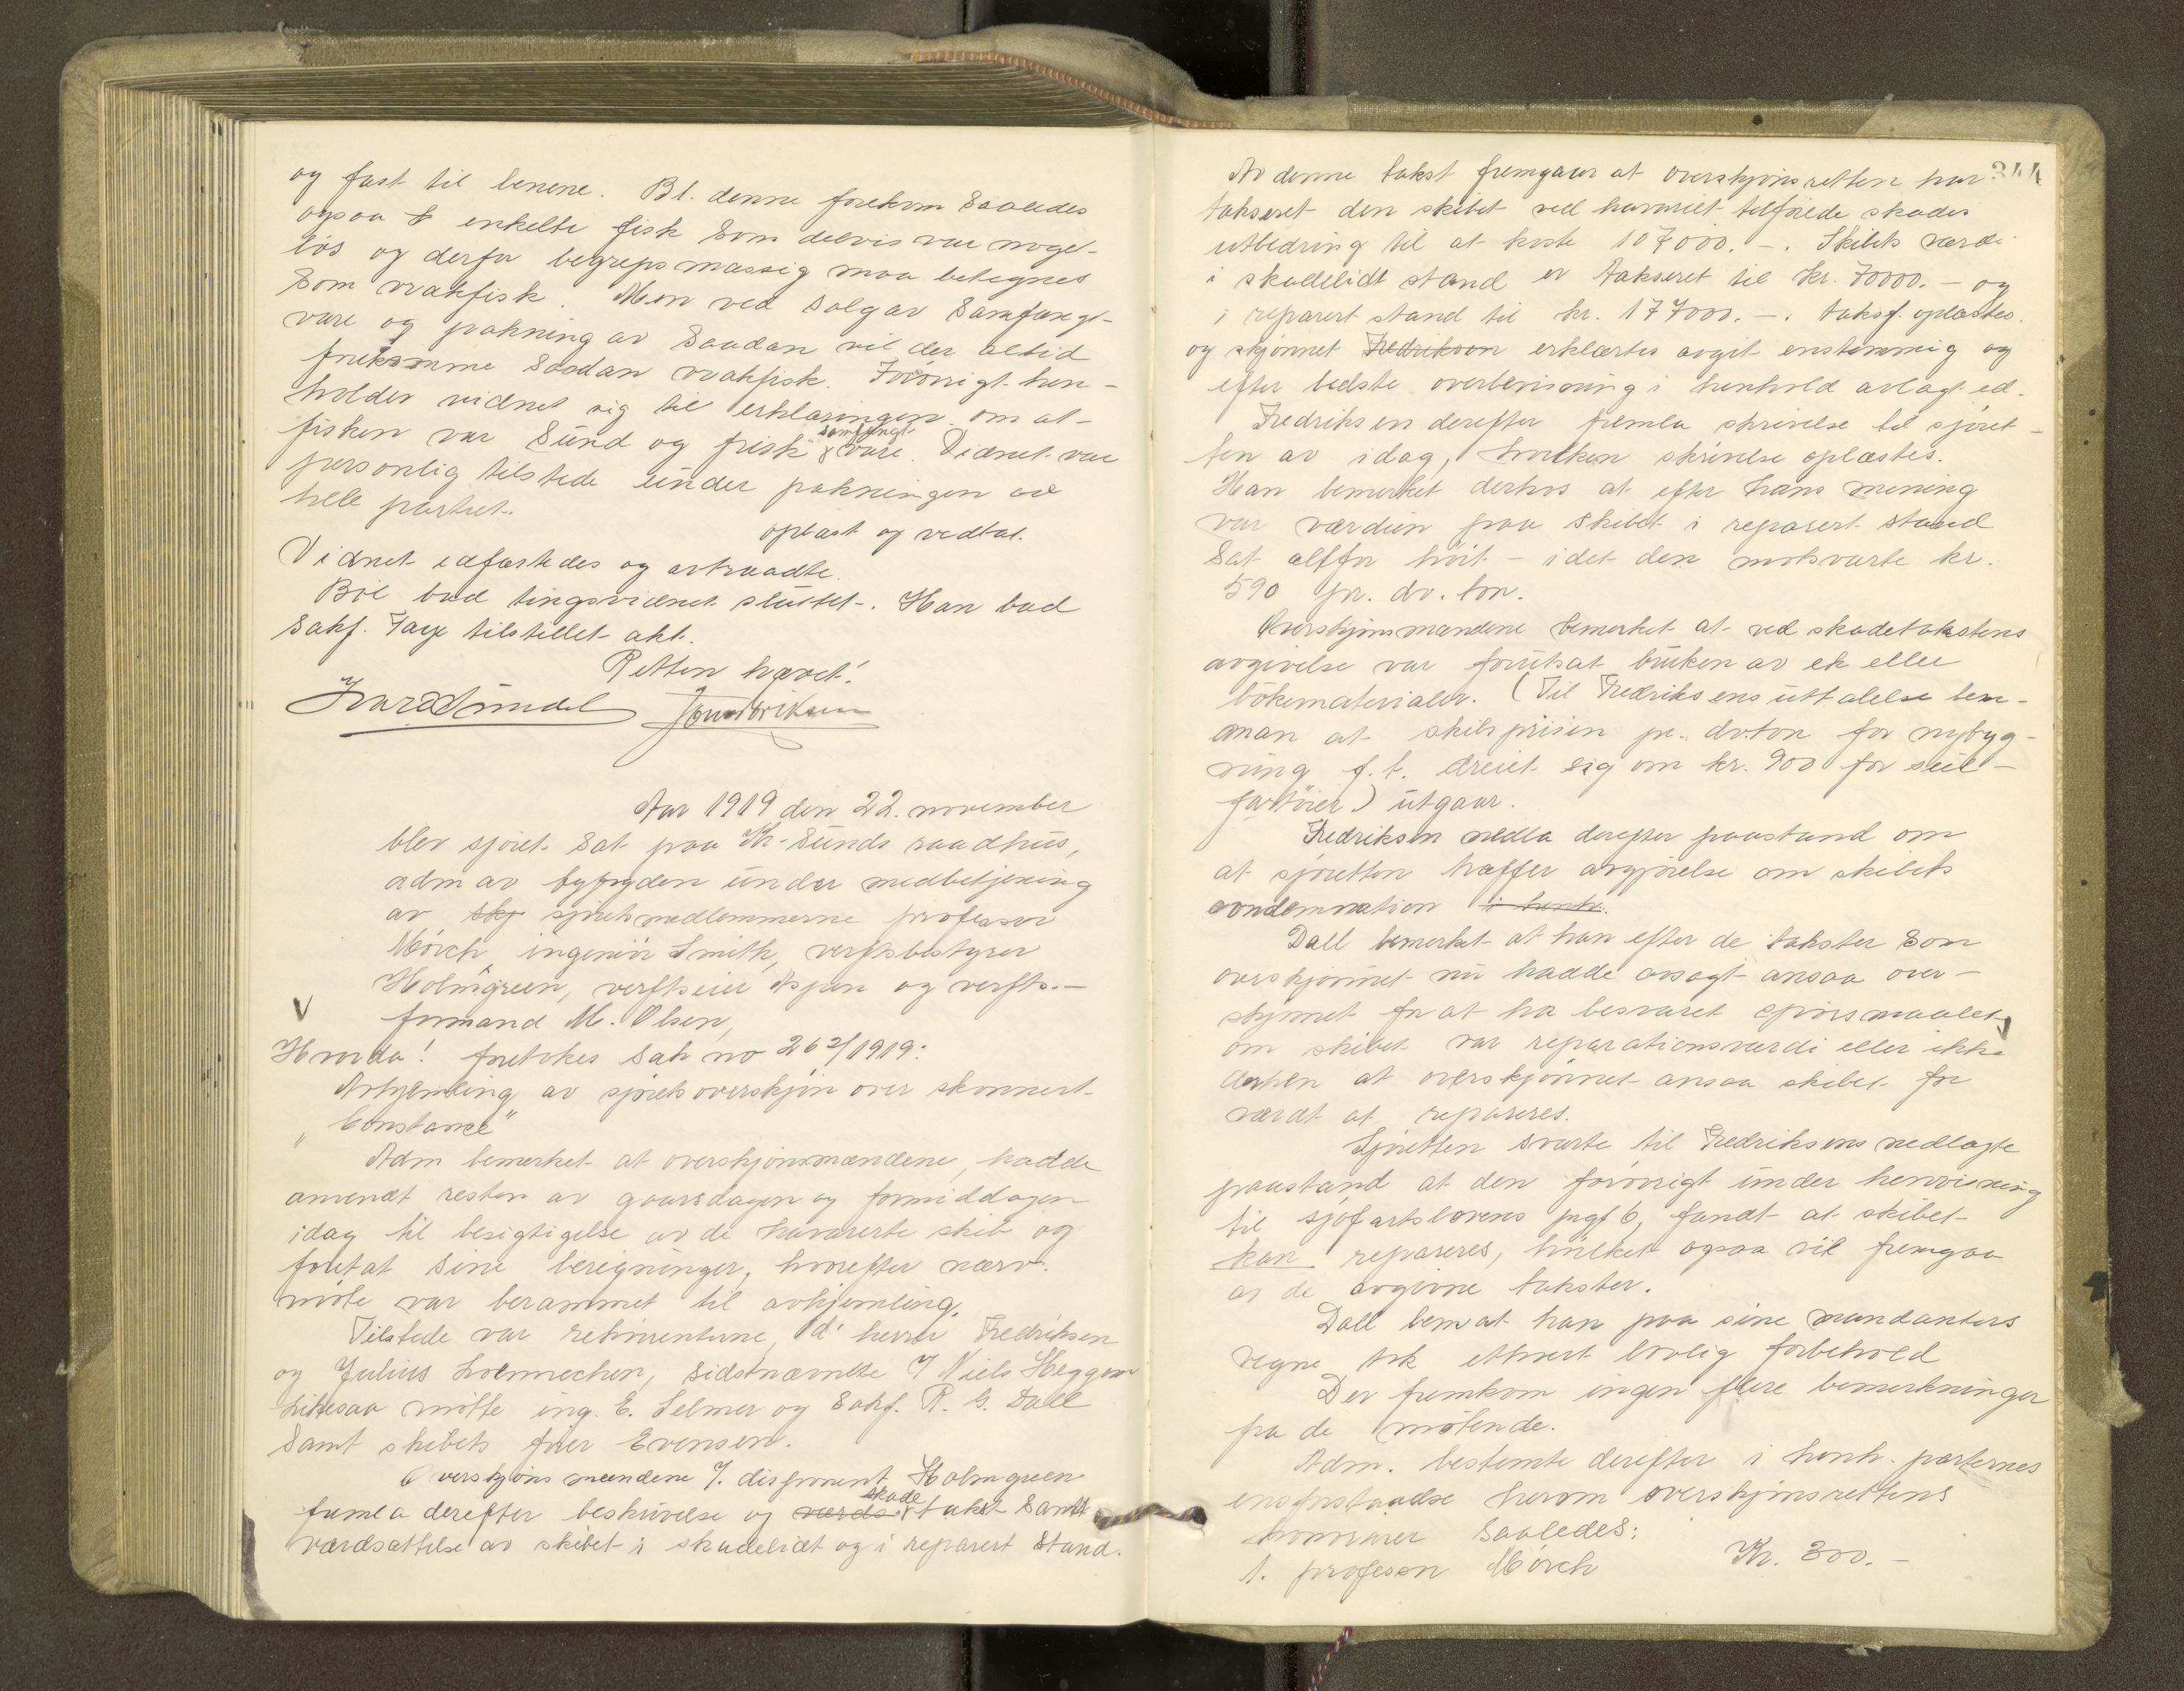 og fast til benene. Bl. denne forekom saaledes
ogsaa f enkelte fisk som delvis var noget
lös og derfor begrepsmæssig maa betegnes
som vrakfisk. Men ved salg av samfængt-
vare og pakning av saadan vil der altid
forekomme saadan vrakfisk. Forövrigt hen-
holder vidnet sig til erklæringen om at
fisken var "sund og frisk" samfængt vare. Vidnet var
personlig tilstede under pakningen av
hele partiet.
oplæst og vedtat.
Vidnet edfæstedes og avtraadte.
Böe bad tingsvidnet sluttet. Han bad
sakf. Faye tilstillet akt.
Retten hævet!
Aar 1919 den 22. november
blev sjöret sat paa Kr.sunds raadhus,
adm av byfogden under medbetjening
av skj sjöretsmedlemmerne professor
Mörch, ingeniör Smith, verftsbestyrer
Holmgreen, verftseier Aspen og verfts-
formand M. Olsen,
V
Hvorda! foretokes sak no 262/1919:
Avhjemling av sjöretsoverskjön over skonnert
"Constance"
Adm bemerket at overskjönsmændene, hadde
anvendt resten av gaarsdagen og formiddagen
idag til besigtigelse av de havarerte skib og
foretat sine beregninger, hvorefter nærv.
möte var berammet til avhjemling.
Tilstede var rekvirenterne, d'herrer Fredriksen
og Julius Loennechen, sidstnævnte f Niels Heggem
Likesaa mötte ing. E. Selmer og sakf. R. G. Dall
samt skibets förer Evensen.
Overskjönsmændene f. disponent Holmgreen
fremla derefter beskrivelse og værds skade takst samt
værdsættelse av skibet i skadelidt og i reparert stand.
344
Av denne takst fremgaar at overskjönsretten har
takseret den skibet ved havariet tilföiede skades
utbedring til at koste 107000.-. Skibets værdi
i skadelidt stand er takseret til kr. 70000.- og
i reparert stand til kr. 177000.-. Taksf. oplæstes.
og skjönnet Fredriksen erklærtes avgit enstemmig og
efter bedste overbevisning i henhold avlagt ed.
Fredriksen derefter fremla skrivelse til sjöret-
ten av idag, hvilken skrivelse oplæstes.
Han bemerket derhos at efter hans mening
var værdien paa skibet i reparert stand
sat altfor höit - idet den motsvarte kr.
590 pr. dv. ton.
Overskjönsmændene bemerket at ved skadetakstens
avgivelse var forutsat bruken av ek eller
bökematerialer. (Til Fredriksens uttalelse bem-
man at skibsprisen pr. dv.ton for nybyg-
ning f.t. dreiet sig om kr. 900 for seil-
fartöier) utgaar.
Fredriksen nedla derefter paastand om
at sjöretten træffer avgjörelse om skibets
condemnation i henh.
Dall bemerket at han efter de takster som
overskjönnet nu hadde avsagt ansaa over-
skjönnet for at ha besvaret spörsmaalet
om skibet var reparationsværdi eller ikke
derhen at overskjönnet ansaa skibet for
værdt at repareres.
Sjöretten svarte til Fredriksens nedlagte
paastand at den forövrigt under henvisning
til sjöfartslovens prgf 6, fandt at skibet
kan repareres, hvilket ogsaa vil fremgaa
av de avgivne takster.
Dall bem at han paa sine mandanters
vegne tok ethvert lovlig forbehold
Der fremkom ingen flere bemerkninger
fra de mötende.
Adm. bestemte derefter i henh. parternes
overskjönsrettens
honorarer saaledes:
1. professor Mörch Kr. 300.-